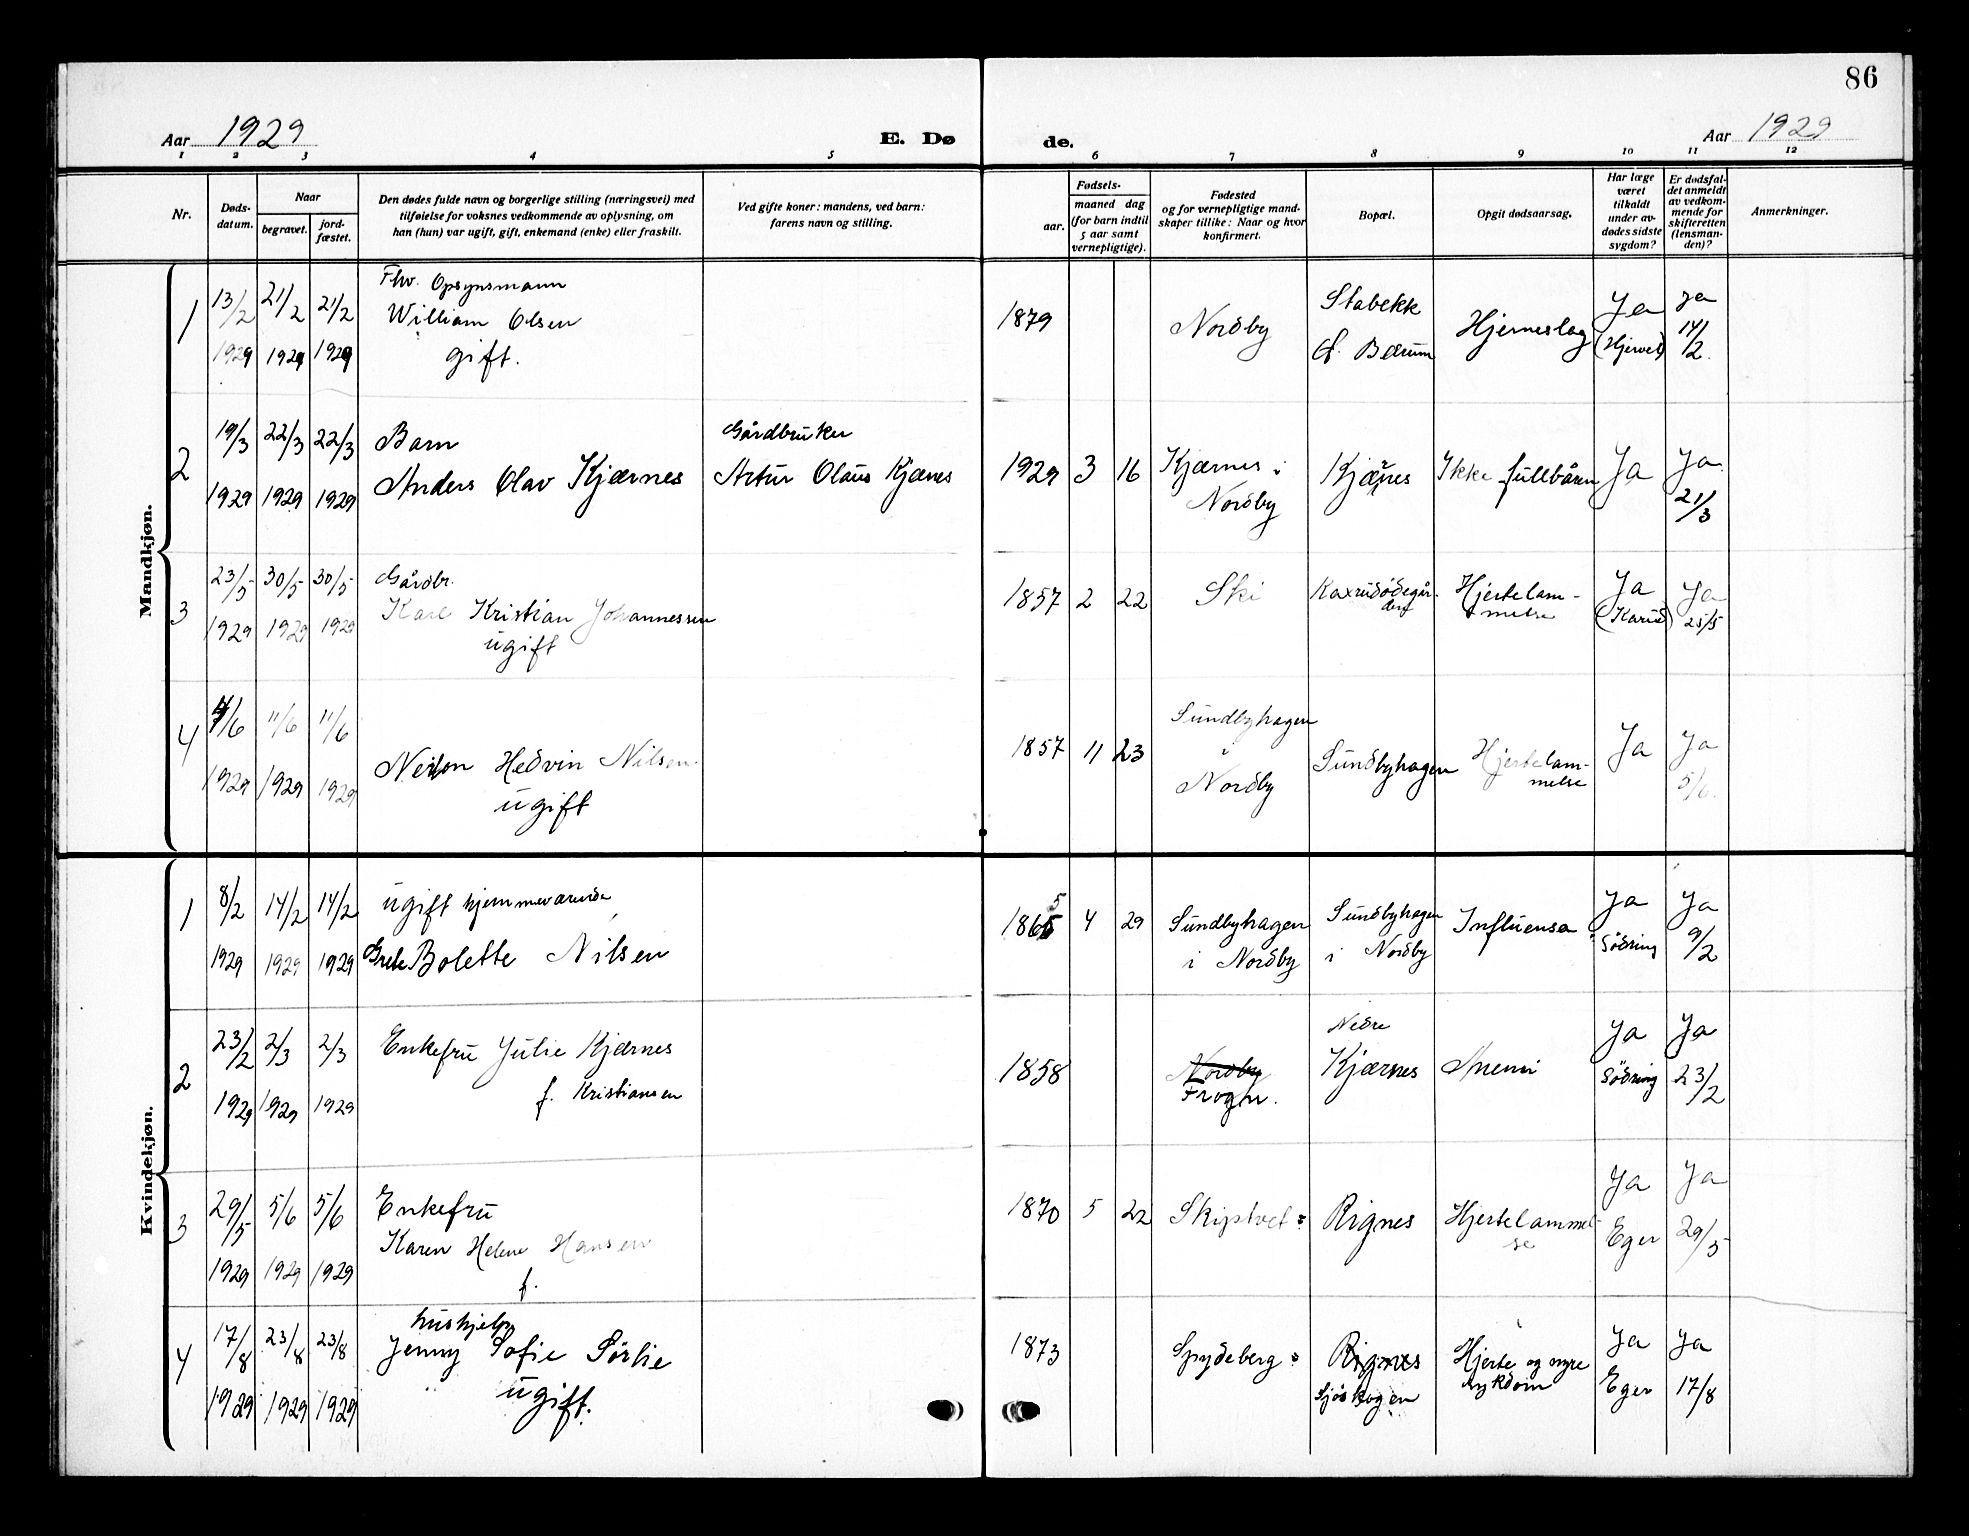 86
Aar 1929
E. Dø
de.
Aar 1929
1 2 3 4 5 6 7 8 9 10 11 12
Nr.
Døds-
datum.
Naar
begravet.
jord-
fæstet.
Den dødes fulde navn og borgerlige stilling (næringsvei) med
tilføielse for voksnes vedkommende av oplysning, om
han (hun) var ugift, gift, enkemand (enke) eller fraskilt.
Ved gifte koner: mandens, ved barn:
farens navn og stilling.
Fødsels-
aar.
maaned dag
(for barn indtil
5 aar samt
vernepligtige).
Fødested
og for vernepligtige mand-
skaper tillike: Naar og hvor
konfirmert.
Bopæl.
Opgit dødsaarsag.
Har læge
været
tilkaldt
under av-
dødes sidste
sygdom?
Er dødsfal-
det anmeldt
av vedkom-
mende for
skifteretten
(lensman-
den)?
Anmerkninger.
Mandkjøn.
1
13/2 1929
21/2 1929
21/2 1929
Fhv. Opsynsmann
William Olsen
gift.
1879
Nordby
Stabekk
Bærum
Hjerneslag
Ja
ja
14/2.
2
19/3 1929
22/3 1929
22/3 1929
Barn
Anders Olav Kjærnes
Gårdbruker
Artur Olaus Kjænes
1929 3 16
Kjærnes i
Nordby
Kjærnes
Ikke fullbåren
Ja
Ja
21/3
3
23/5 1929
30/5 1929
30/5 1929
Gårdbr.
Karl Kristian Johannessen
ugift
1857 2 22
Ski
Hjertelam-
melse
Ja
Ja
4
4/6 1929
11/6 1929
11/6 1929
Hedvin Nilsen
ugift
1857 11 23
Sundbyhagen
i
Nordby
Sundbyhagen
Hjertelam-
melse
Ja
Ja
5/6.
Kvindekjøn.
1
8/2 1929
14/2 1929
14/2 1929
ugift hjemmeværende
Grete Bolette Nilsen
1865 4 29
Sundbyhagen
i Nordby
Sundbyhagen
i Nordby
Influensa
Ja
Södring
Ja
9/2
2
23/2 1929
2/3 1929
2/3 1929
Enkefru Julie Kjærnes
f. Kristiansen
1858
Nordby
Frogn.
Nedre
Kjærnes
Anemi
Ja
Södring
Ja
23/2
3
29/5 1929
5/6 1929
5/6 1929
Enkefru
Karen Helene Hansen
f.
1870 5 22
Skiptvet
Rignes
Hjertelammel-
se
Ja
Eger
Ja
29/5
4
17/8 1929
23/8 1929
23/8 1929
hushjelp
Jenny Sofie Sörlie
ugift.
1873
Spydeberg
Rignes
Sjöskogen
Hjerte og nyre
sykdom
Ja
Eger
Ja
17/8